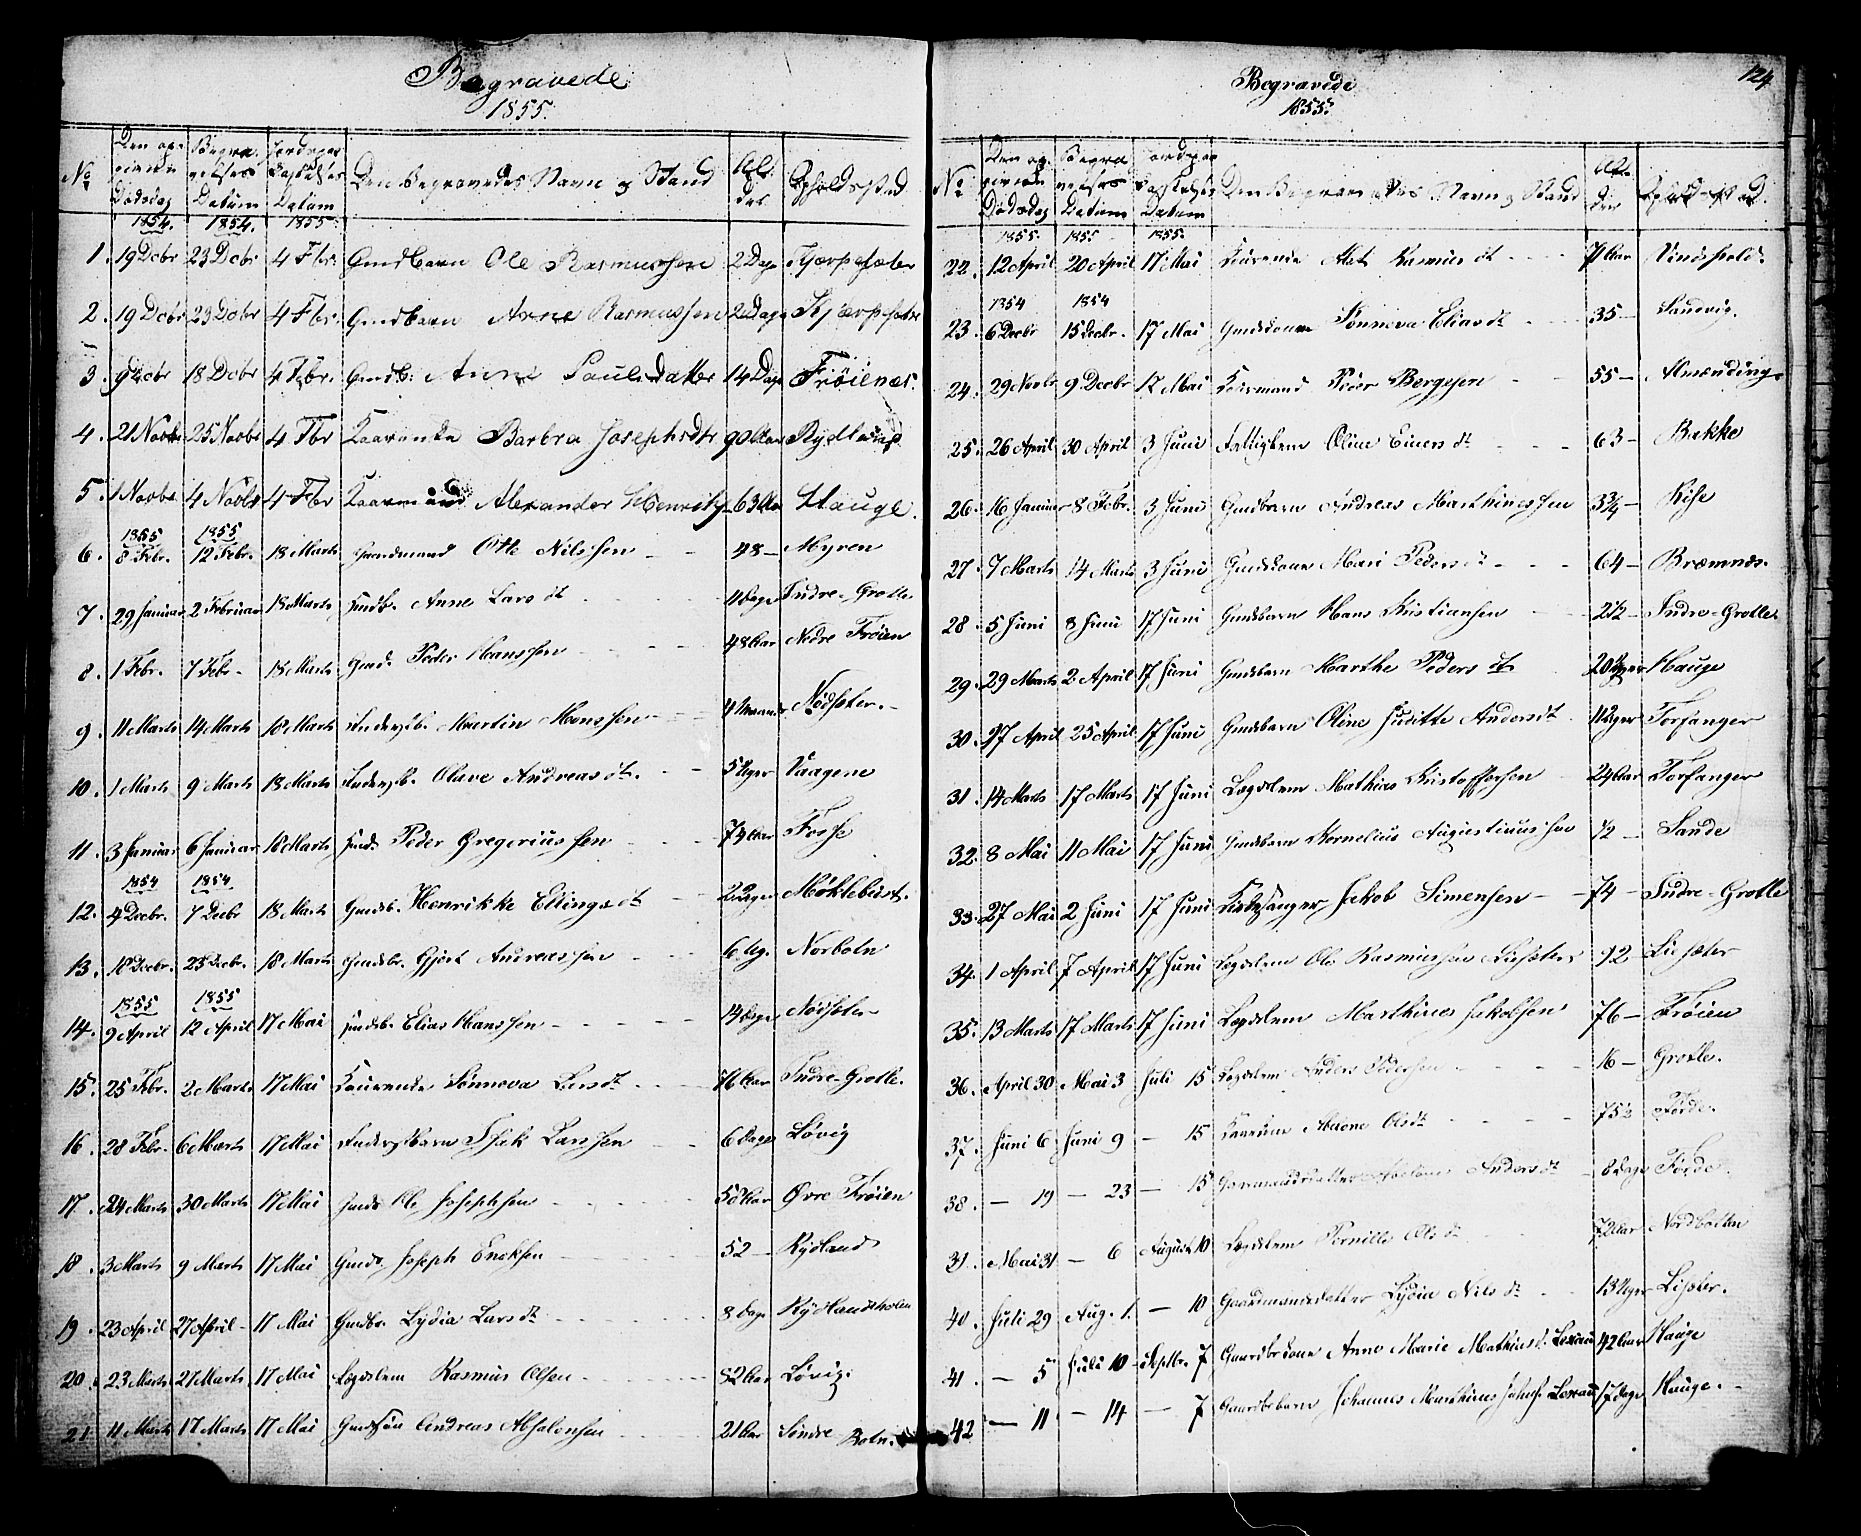 Begravede
1855.
No Den op- givne Dødsdag Begra- velses Datum Jordpaa- kastelses Datum Den Begravedes Navn og Stand Al- der Opholdssted
1854. 1854. 1855.
1. 19 Dcbr 23 Dcbr 4 Fbr. Gmdbarn Ole Rasmussen 2 Dage
2. 19 Dcbr 23 Dcbr 4 Fbr. Gmdbarn Anne Rasmussen 2 Dage
3. 9 Dcbr 18 Dcbr 4 Fbr. Gmdb. Anne Paulsdatter 14 Dage Frøienæs.
4. 21 Novbr 25 Novbr 4 Fbr Kaarenke Barbra Josephsdtr 90 Aar Rydland
5. 1 Novbr 4 Novbr 4 Fbr Kaarmand Alexander Henrits 63 Aar Hauge.
1855 1855
6. 8 Febr. 12 Febr. 18 Marts Gaardmand Otte Nilssen 48 — Myren
7. 29 Januar 2 Februar 18 Marts Anne Lars dt Indre-Grotle
8. 1 Febr. 7 Febr. 18 Marts Gmd. Peder Hanssen 48 Aar Nedre Frøien
9. 11 Marts 14 Marts 18 Marts Inderstb. Martin Monssen 4 Maaneder Nødseter.
10. 1 Marts 9 Marts 18 Marts Inderstb. Olave Andreas dt. 5 Uger Vaagene
11. 3 Januar 6 Januar 18 Marts Peder Gregeriussen 74 Aar Fosse
1854 1854
12. 4 Decbr. 7 Decbr 18 Marts Gmdsb. Henrikke Ellings dt Møklebust.
13. 18 Decbr. 23 Decbr. 18 Marts Gmdsbr. Gjert Andreassen 6 Ug. Norbotn
1855 1855
14. 9 April 12 April 17 Mai Elias Hanssen 14 Dage Nødseter
15. 25 Febr. 2 Marts 17 Mai Kaarenke Sønneva Lars dt. 76 Aar Indre-Grotle.
16. 28 Febr. 6 Marts 17 Mai Inderstbarn Isak Larssen 6 Dage Løvig
17. 24 Marts 30 Marts 17 Mai Gmd. Ole Josephsen 50 Aar Øvre Frøien
18. 3 Marts 9 Marts 17 Mai Gmd. Joseph Enoksen 52 — Rydland
19. 23 April 27 April 17 Mai Gmdbr. Lydia Lars dt. 8 Dage Rydlandsholm
20. 23 Marts 27 Marts 17 Mai Lægdslem Rasmus Olsen 82 Aar Løvig.
21. 11 Marts 17 Marts 17 Mai Gmdsøn Andreas Absalonsen 21 Aar Søndre Botn.
Begravede
1855.
124
No Den op- givne Dødsdag Begra- velses Datum Jordpaa- kastelses Datum Den Begravedes Navn og Stand Al- der Opholdssted.
1855. 1855. 1855.
22. 12 April 20 April 17 Mai Kaarenke Rasmus dt 71 Aar Vindspold.
1854 1854
23. 6 Decbr 15 Decbr. 17 Mai Gmdskone Sønneva Elias dt 35 — Sandvig.
24. 29 Novbr 9 Decbr 17 Mai Kaarmand Peder Børgesen 55 —
25. 26 April 30 April 3 Juni Fattiglem Oline Einers dt 63 — Bakke
26. 16 Januar 8 Febr. 3 Juni Gmdbarn Andreas Marthinessen 3¾ — Rise
27. 7 Marts 14 Marts 3 Juni Gmdskone Mari Peders dt 64 — Bremnes.
28. 5 Juni 8 Juni 17 Juni Gmdsbarn Hans Kristiansen 2½ — Indre-Grotle.
29. 29 Marts 2 April 17 Juni Gmdsbarn Marthe Peders dt. 20 Uger Hauge
30. 17 April 23 April 17 Juni Gmdsbarn Oline Juditte Anders dt. Torfanger
31. 14 Marts 17 Marts 17 Juni Lægdslem Mathias Kristoffersen 24 Aar Torfanger
32. 8 Mai 11 Mai 17 Juni Gmdsbarn Kornelius Augustinussen ½ — Sande
33. 27 Mai 2 Juni 17 Juni Kirkesanger Jakob Simensen 74 — Indre-Grotle
34. 1 April 7 April 17 Juni Lægdslem Ole Rasmussen Liseter 92 — Liseter
35. 13 Marts 17 Marts 17 Juni Lægdslem Marthines Jakobsen 76 — Frøien
36. April 30 Mai 3 Juli 15 Lægdslem Anders Pedersen 16 — Grotle.
37. Juni 6 Juni 9 — 15 Ols dt 75½ Førde.
38. — 19 — 23 — 15 Gaardmandsdatter Anders dt 8 Dage Førde.
39. Mai 31 — 6 August 10 Lægdslem Pernille Ols dt 72 Aar Nordbotten
40. Juli 29 Aug. 1. — 10 Gaardmandsdatter Lydia Nils dt 13 Uger Liseter.
41. — 5 Juli 10 Septbr. 7 Gaardbrkone Anne Marie Mathias dt. 42 Aar Hauge
42 — 11 — 14 — 7 Gaardbrbarn Johannes Marthinus 17 Dage Hauge.